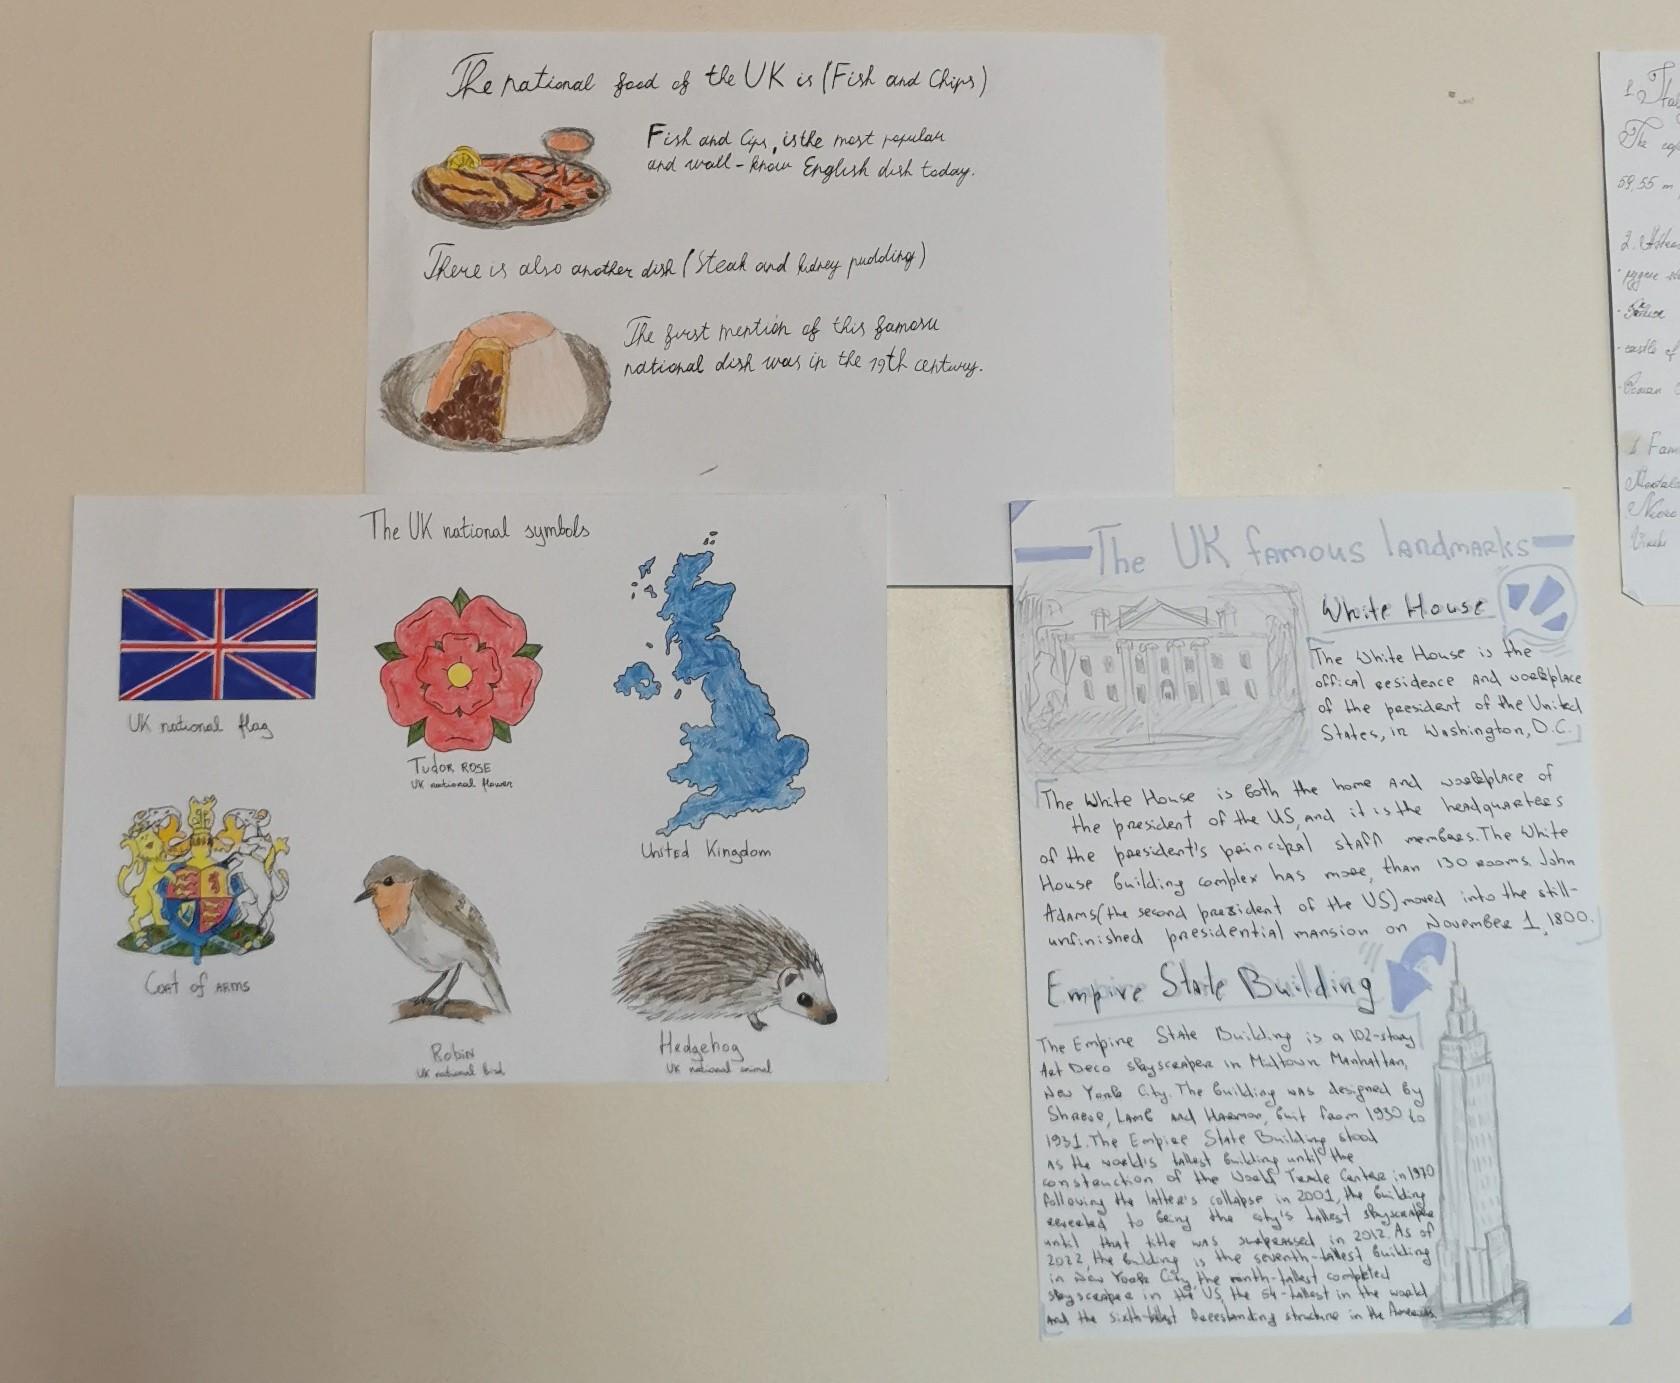 The national food of the UK is (Fish and Chips)
Fish and Cips, is the most popular
and wall-know English dish today.
There is also another dish (Steak and kidney pudding)
The first mention of this famosu
national dish was in the 19th century.
The UK national symbols
UK national flag
Tudor Rose
UK national flower
United Kingdom
Coat of Arms
Robin
UK national bird
Hedgehog
UK national animal
The UK famous landmarks
White House
The White House is the
offical residence and workplace
of the president of the United
States, in Washington, D.C.
The White House is both the home and workplace of
the president of the US, and it is the headquarters
of the president's principal staff members. The White
House building complex has more, than 130 rooms. John
Adams (the second prezident of the US) moved into the still-
unfinished presidential mansion on November 1, 1800.
Empire State Building
The Empire State Building is a 102-story
Art Deco skyscraper in Midtown Manhattan,
New York City. The building was designed by
Shreve, Lamb and Harmon, buit from 1930 to
1931. The Empire State Building stood
as the world's tallest building until the
construction of the World Trade Center in 1970
following the latter's collapse in 2001, the building
reverted to being the city's tallest skyscraper
until that title was surpassed in 2012. As of
2022, the building is the seventh-tallest building
in New York City, the ninth-tallest completed
skyscraper in the US, the 54-tallest in the world
and the sixth-tallest freestanding structure in the Americas.
1.
The
59,55 m
2.
castle of